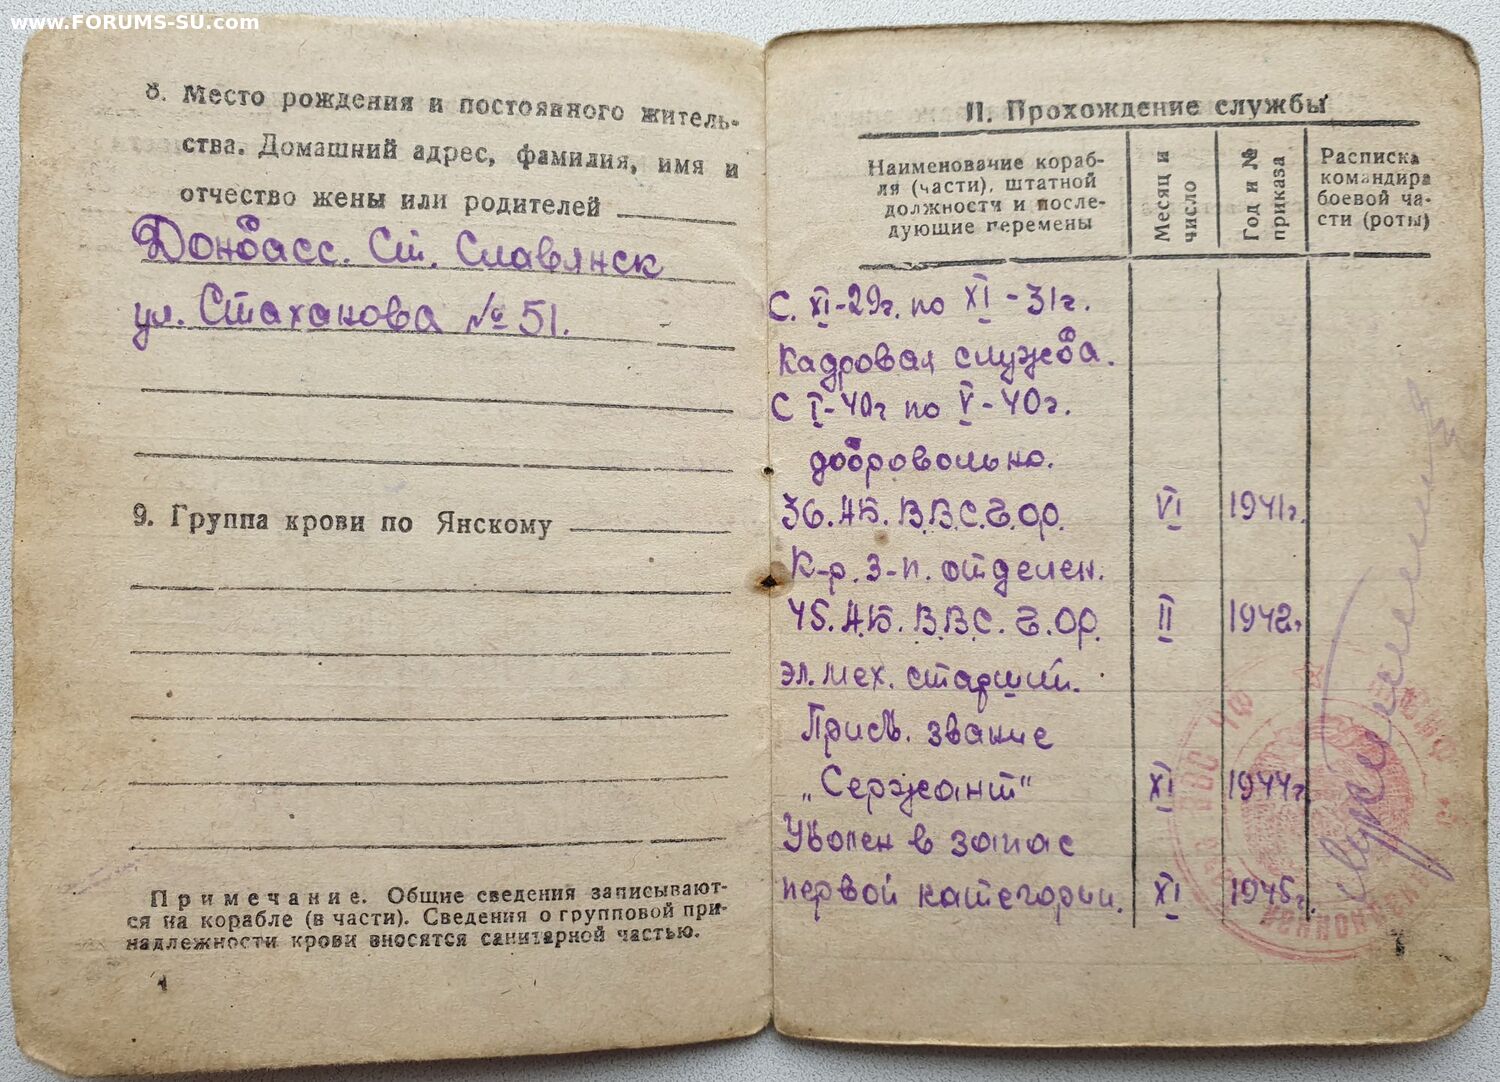 www.FORUMS-SU.com
8. Место рождения и постоянного житель-
ства. Домашний адрес, фамилия, имя и
отчество жены или родителей
Донбасс. Ст. Славянск
ул. Стаханова № 51.
9. Группа крови по Янскому
Примечание. Общие сведения записывают-
ся на корабле (в части). Сведения о групповой при-
надлежности крови вносятся санитарной частью.
II. Прохождение службы
Наименование кораб-
ля (части), штатной
должности и после-
дующие перемены
Месяц и
число
Год и №
приказа
Расписка
командира
боевой ча-
сти (роты)
С. XI-29г. по XI-31г.
Кадровая служба.
С I-40г по V-40г.
добровольно.
36. АБ. В.В.С. Б. ор. VI 1941г.
К-р. З-п. отделен.
45. А.Б. В.В.С. Б. ор. II 1942г.
эл. мех. старший.
Присв. звание
„Сержант" XI 1944г.
Уволен в запас
первой категории. XI 1945г.